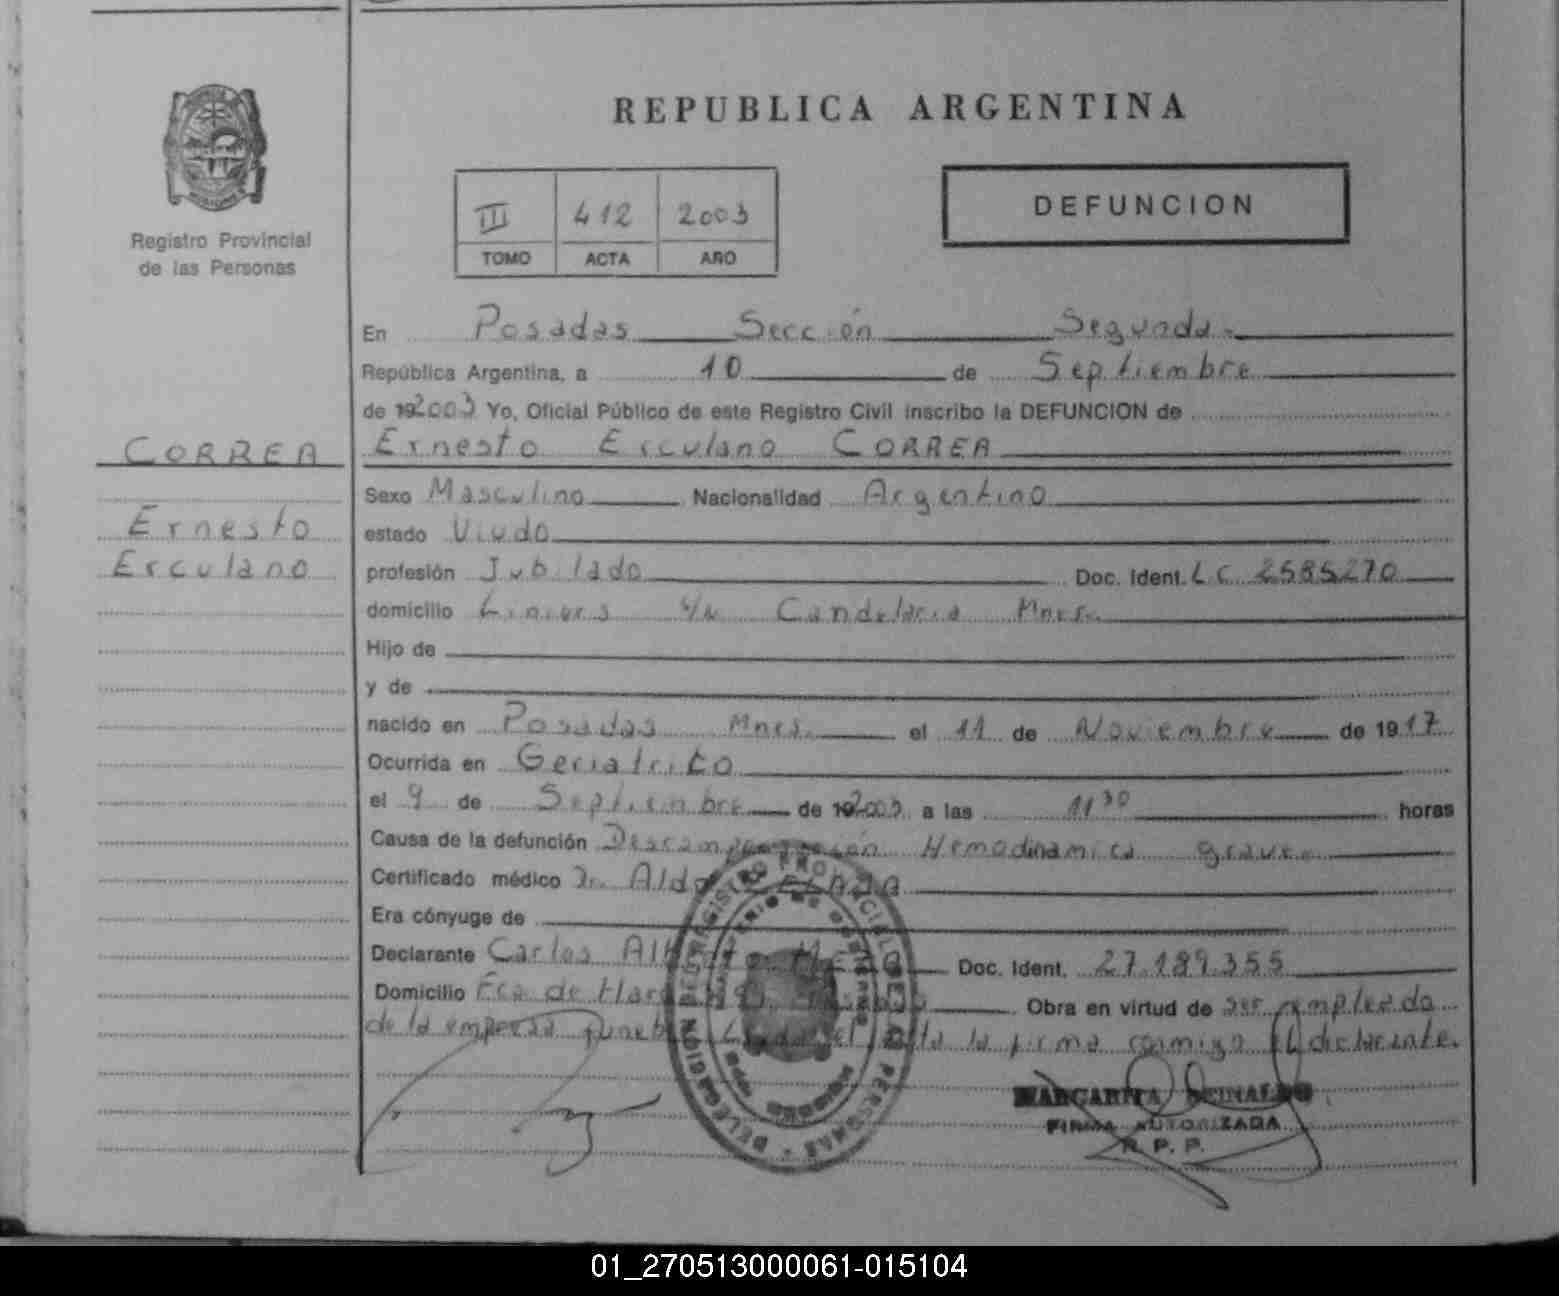 REPUBLICA ARGENTINA
Registro Provincial
de las Personas
III 412 2003
TOMO ACTA AÑO
DEFUNCION
En Posadas Sección Segunda
República Argentina, a 10 de Septiembre
de 192003 Yo, Oficial Público de este Registro Civil inscribo la DEFUNCION de
CORREA
Ernesto Erculano CORREA
Ernesto
Erculano
Sexo Masculino Nacionalidad Argentino
estado Viudo
profesión Jubilado Doc. Ident. L C 2585270
domicilio Liniers s/n Candelaria Mnes.
Hijo de
y de
nacido en Posadas Mnes. el 11 de Noviembre de 1917
Ocurrida en Geriatrico
el 9 de Septiembre de 192003 a las 11 30 horas
Causa de la defunción Descompensación Hemodinamica grave
Certificado médico Dr. Aldo
Era cónyuge de
Declarante Carlos Doc. Ident. 27.189.355
Domicilio Fca de Haro Obra en virtud de ser empleado
de la empresa funebre la firma conmigo el declarante.
REGISTRO PROVINCIAL DE PERSONAS - DELEGACION
MARGARITA REINALDO
FIRMA AUTORIZADA
R. P. P.
01_270513000061-015104